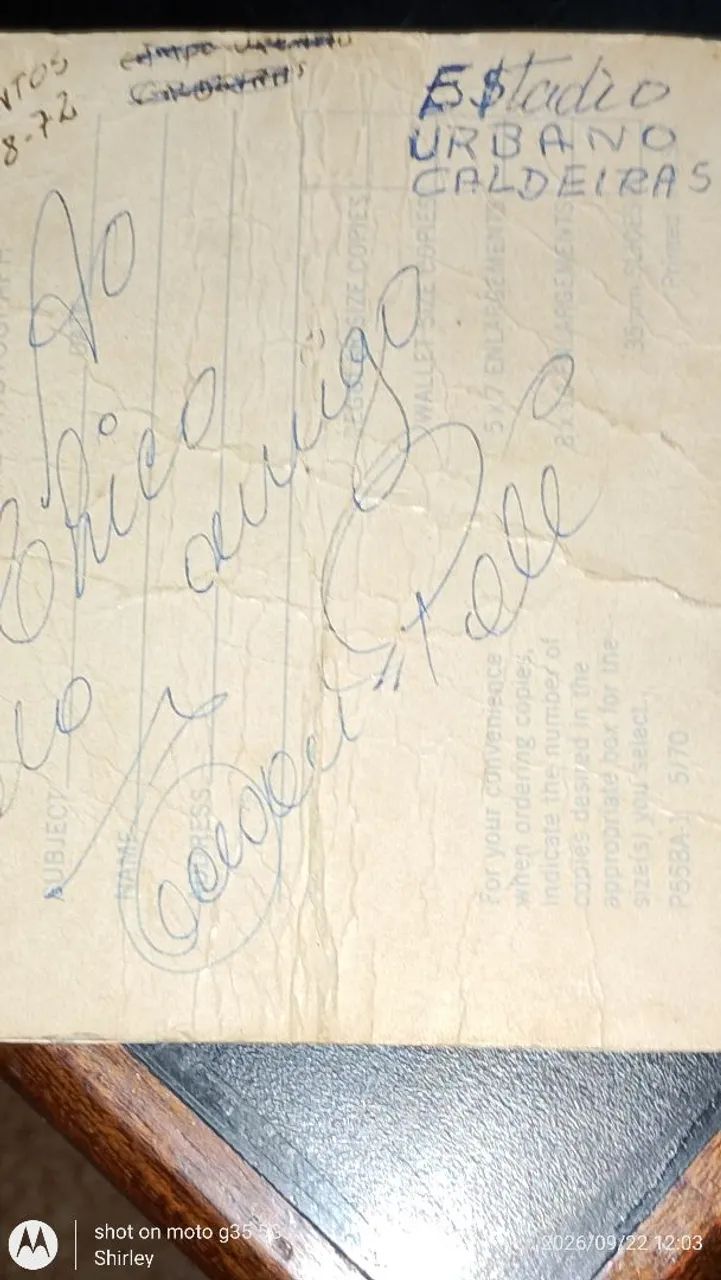 NTOS
8-72
EStadio
URBANO
CALDEIRAS
Ao
Chico
amigo
Edson "Pelé
SUBJECT
NAME
ADDRESS
REGULAR SIZE COPIES
WALLET SIZE COPIES
5 x 7 ENLARGEMENTS
8 x 10 ENLARGEMENTS
35mm SLIDES
Printed
For your convenience
when ordering copies,
indicate the number of
copies desired in the
appropriate box for the
size(s) you select.
P558A-1 5/70
shot on moto g35 5G
Shirley
2026/09/22 12:03